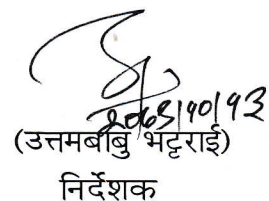 २०६९।१०।१३
(उत्तमबाबु भट्टराई)
निर्देशक